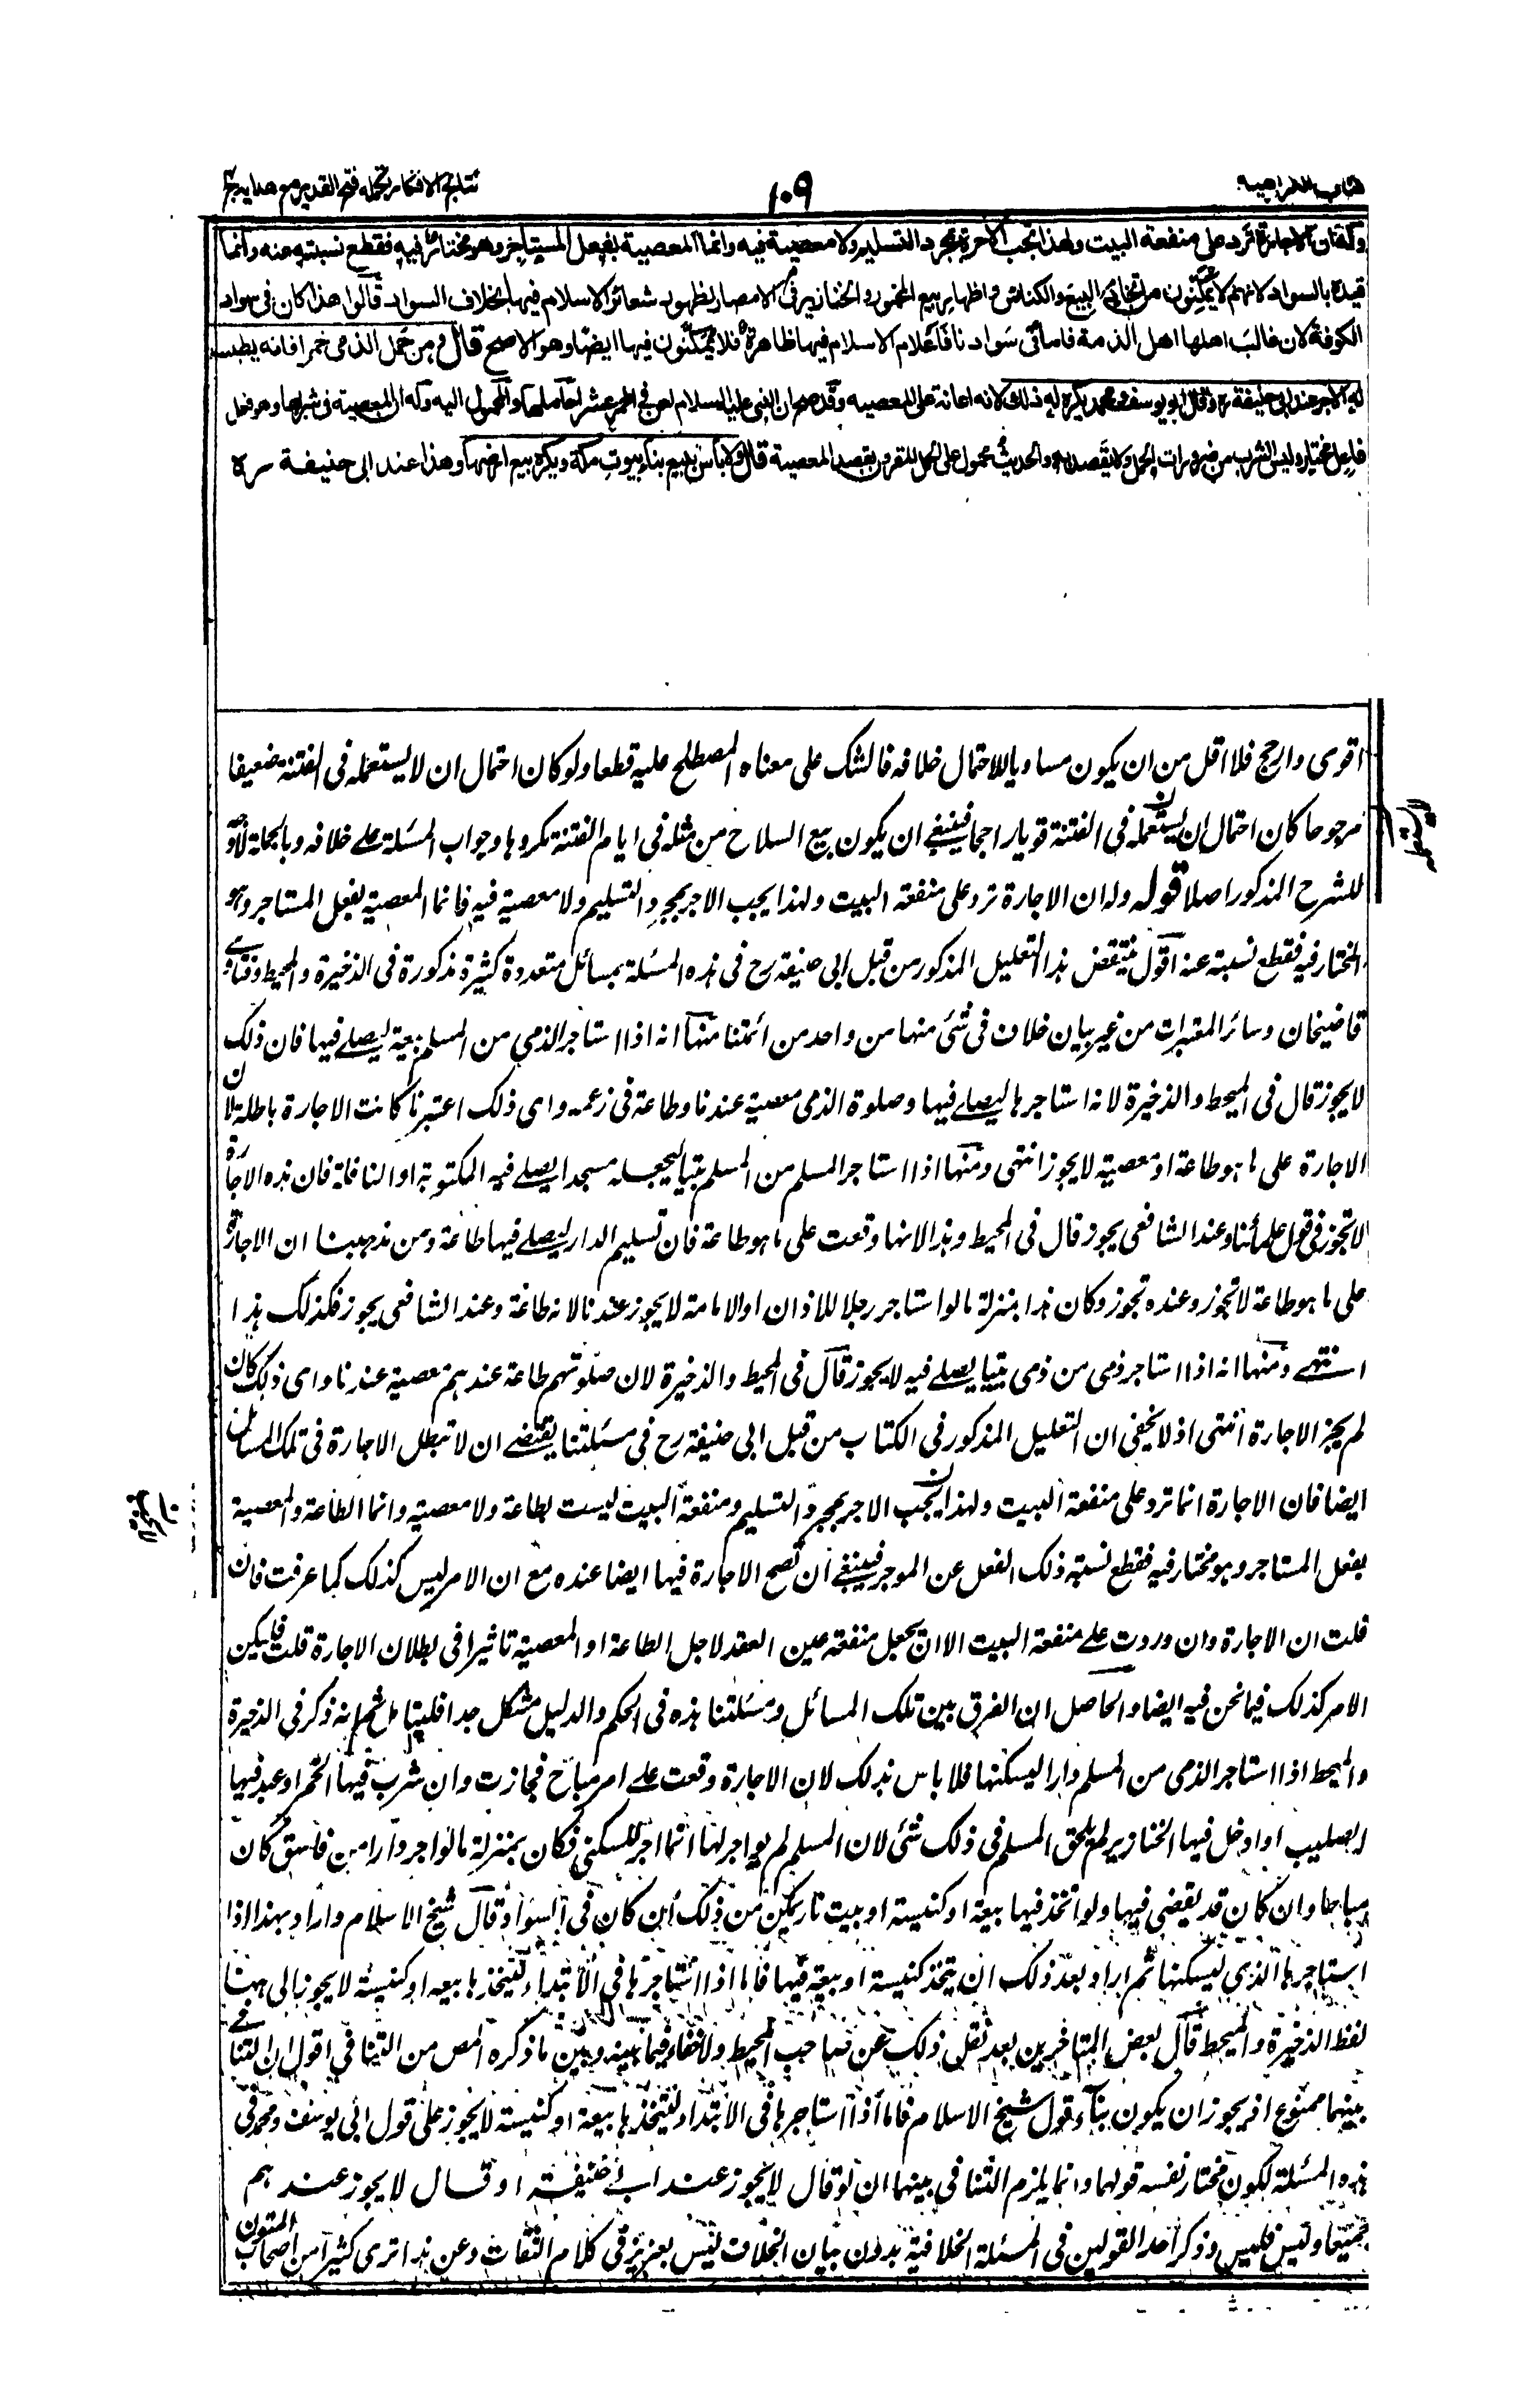 كتاب الكراهية
١٠٩
نتائج الافكار تكمله فتح القدير مع هدايه ج٤
وله ان الاجارة ترد على منفعة البيت ولهذا تجب الاجرة بمجرد التسليم ولا معصية فيه وانما المعصية بفعل المستاجر وهو مختار فيه فقطع نسبته عنه وانما
قيده بالسواد لانهم لا يمكنون من اتخاذ البيع والكنائس واظهار بيع الخمور والخنازير في الامصار لظهور شعائر الاسلام فيها بخلاف السواد قالوا هذا كان في سواد
الكوفة لان غالب اهلها اهل الذمة فاما في سوادنا فاعلام الاسلام فيها ظاهرة فلا يمكنون فيها ايضا وهو الاصح قال ومن حمل الذمى خمرا فانه يطيب
له الاجر عند ابى حنيفة ره وقال ابو يوسف ومحمد يكره له ذلك لانه اعانة على المعصيه وقد صح ان النبى عليه السلام لعن فى الخمر عشرا حاملها والمحمول اليه وله ان المعصية فى شربها وهو فعل
فاعل مختار وليس الشرب من ضرورات الحمل ولا يقصد به والحديث محمول على الحمل المقرون بقصد المعصية قال ولا بأس ببيع بناء بيوت مكة ويكره بيع ارضها وهذا عند ابى حنيفة ره
اقوى وارجح فلا اقل من ان يكون مساويا للاحتمال خلافه فالشك على معناه المصطلح عليه قطعا ولو كان احتمال ان لا يستعمله فى الفتنة ضعيفا
مرجوحا كان احتمال ان يستعمله فى الفتنة قويا راجحا فينبغى ان يكون بيع السلاح من مثله فى ايام الفتنة مكروها وجواب المسئلة على خلافه وبالجملة لا وجه
للشرح المذكور اصلا قوله وله ان الاجارة ترد على منفعة البيت ولهذا يجب الاجر بمجرد التسليم ولا معصية فيه فانما المعصية بفعل المستاجر وهو
المختار فيه فقطع نسبته عنه اقول ينتقض هذا التعليل المذكور من قبل ابى حنيفة رح فى هذه المسئلة بمسائل متعددة كثيرة مذكورة فى الذخيرة والمحيط وفتاوى
قاضيخان وسائر المعتبرات من غير بيان خلاف فى شئ منها من واحد من ائمتنا منها انه اذا استاجر الذمى من المسلم بيعة ليصلى فيها فان ذلك
لا يجوز قال فى المحيط والذخيرة لانه استاجرها ليصلى فيها وصلوة الذمى معصية عندنا وطاعة فى زعمه واى ذلك اعتبرنا كانت الاجارة باطلة لان
الاجارة على ما هو طاعة او معصية لا يجوز انتهى ومنها اذا استاجر المسلم من المسلم بيتا ليجعله مسجدا يصلى فيه المكتوبة او النافلة فان هذه الاجارة
لا تجوز فى قول علمائنا وعند الشافعى يجوز قال فى المحيط وهذا لانها وقعت على ما هو طاعة فان تسليم الدار ليصلى فيها طاعة ومن مذهبنا ان الاجارة
على ما هو طاعة لا تجوز وعنده تجوز وكان هذا بمنزلة ما لو استاجر رجلا للاذان او الامامة لا يجوز عندنا لانه طاعة وعند الشافعى يجوز فكذلك هذا
انتهى ومنها انه اذا استاجر ذمى من ذمى بيتا يصلى فيه لا يجوز قال فى المحيط والذخيرة لان صلوتهم طاعة عندهم معصية عندنا واى ذلك كان
لم يجز الاجارة انتهى اذ لا يخفى ان التعليل المذكور فى الكتاب من قبل ابى حنيفة رح فى مسئلتنا يقتضى ان لا تبطل الاجارة فى تلك المسائل
ايضا فان الاجارة انما ترد على منفعة البيت ولهذا يجب الاجر بمجرد التسليم ومنفعة البيت ليست بطاعة ولا معصية وانما الطاعة والمعصية
بفعل المستاجر وهو مختار فيه فقطع نسبة ذلك الفعل عن الموجر فينبغى ان تصح الاجارة فيها ايضا عنده مع ان الامر ليس كذلك كما عرفت فان
قلت ان الاجارة وان وردت على منفعة البيت الا ان يجعل منفعته عين العقد لاجل الطاعة او المعصية تاثيرا فى بطلان الاجارة قلت فليكن
الامر كذلك فيما نحن فيه ايضا والحاصل ان الفرق بين تلك المسائل ومسئلتنا هذه فى الحكم والدليل مشكل جدا فليتامل ثم انه ذكر فى الذخيرة
والمحيط اذا استاجر الذمى من المسلم دارا ليسكنها فلا باس بذلك لان الاجارة وقعت على امر مباح فجازت وان شرب فيها الخمر او عبد فيها
الصليب او ادخل فيها الخنازير لم يلحق المسلم فى ذلك شئ لان المسلم لم يواجر لها انما اجر للسكنى فكان بمنزلة ما لو اجر دارا من فاسق كان
مباحا وان كان قد يعصى فيها ولو اتخذ فيها بيعة او كنيسة او بيت نار يمكن من ذلك ان كان فى السواد قال شيخ الاسلام واراد بهذا اذا
استاجرها الذمى ليسكنها ثم اراد بعد ذلك ان يتخذ كنيسة او بيعة فيها فاما اذا استاجرها فى الابتداء ليتخذها بيعه او كنيسة لا يجوز الى هنا
لفظ الذخيرة والمحيط قال بعض المتاخرين بعد نقل ذلك عن صاحب المحيط ولا خفاء فيما بينه وبين ما ذكره المص من التنافى اقول ان التنافى
بينهما ممنوع اذ يجوز ان يكون بناء قول شيخ الاسلام فاما اذا استاجرها فى الابتداء ليتخذها بيعة او كنيسة لا يجوز على قول ابى يوسف ومحمد فى
هذه المسئلة لكون مختار نفسه قولهما وانما يلزم التنافى بينهما ان لو قال لا يجوز عند ابى حنيفة او قال لا يجوز عندهم
جميعا وليس فليس وذكر احد القولين فى المسئلة الخلافية بدون بيان الخلاف ليس بعزيز فى كلام الثقات وعن هذا ترى كثيرا من اصحاب المتون